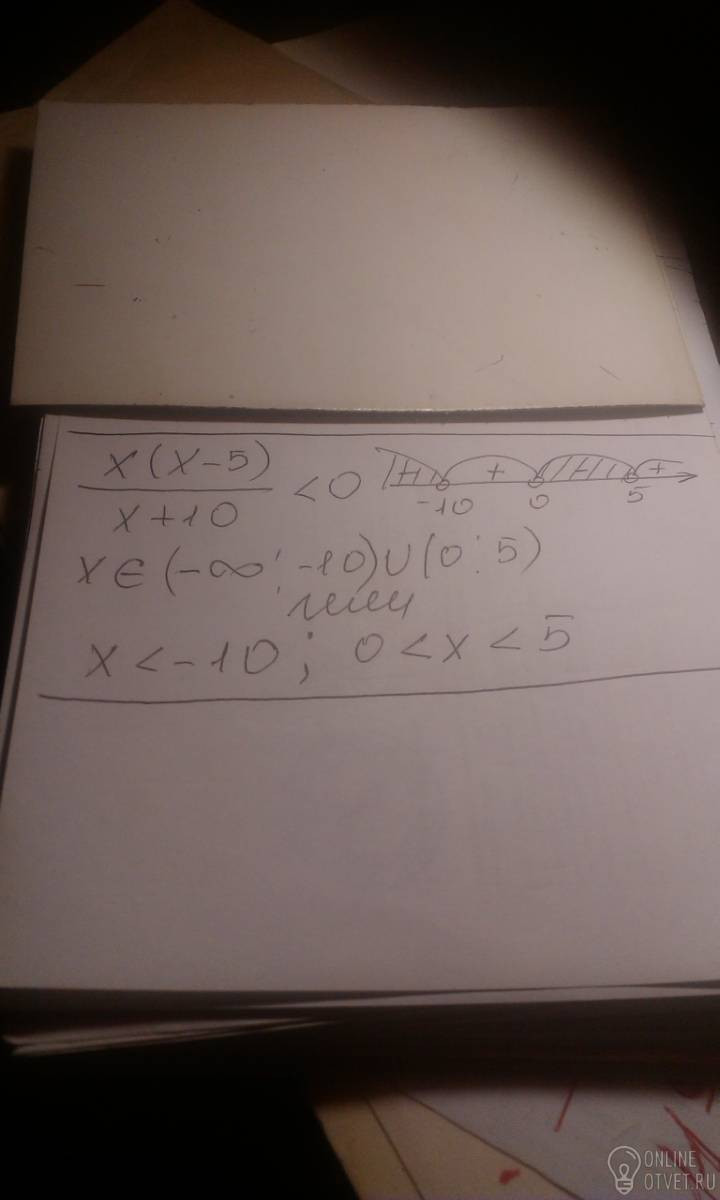 x(x-5)
x+10
<0
+ +
-10 0 5
x∈(-∞;-10)∪(0;5)
или
x<-10; 0<x<5
ONLINE
OTVET.RU